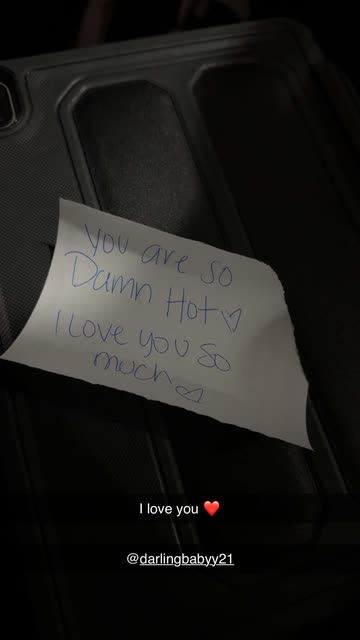 You are so
Damn Hot ♡
I Love you so
much ♡
I love you ❤️
@darlingbabyy21